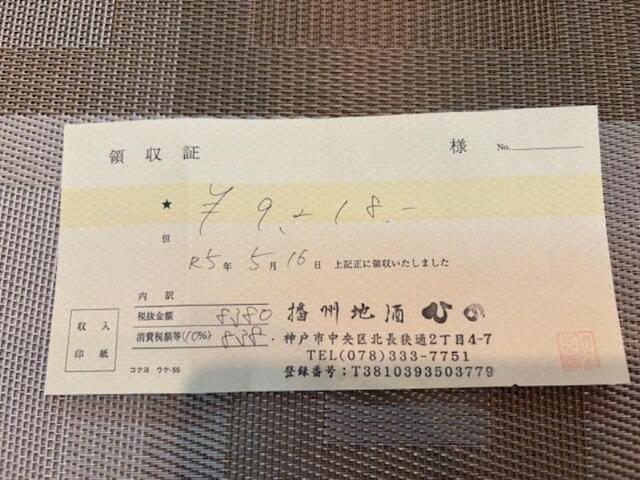 領収証 様 No.
★ ¥9,218.-
但
R5年 5月16日 上記正に領収いたしました
内訳
税抜金額 8380
消費税額等(10%) 838.
収入
印紙
コクヨ ウケ-55
播州地酒 ひの
神戸市中央区北長狭通2丁目4-7
TEL(078)333-7751
登録番号:T3810393503779